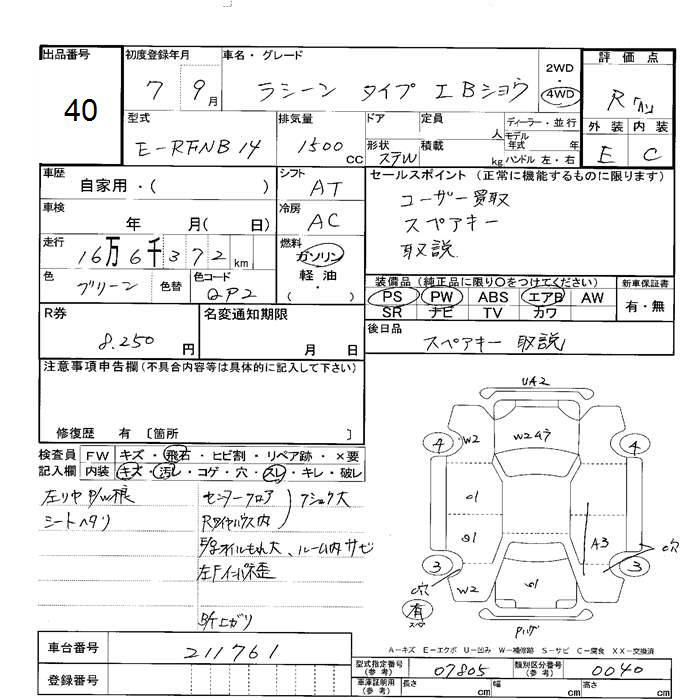 出品番号
40
初度登録年月
7 9月
車名・グレード
ラシーン タイプ エBショウ
2WD
・
4WD
評価点
R
外装 内装
E C
型式
E-RFNB14
排気量
1500
CC
ドア
定員
人
形状 ステW
積載
kg
ディーラー・並行
モデル年式 年
ハンドル 左・右
車歴
自家用・( )
シフト
AT
車検
年 月( 日)
冷房
AC
走行
16万6千372km
燃料
ガソリン
軽油
( ・ )
色
グリーン
色替
色コード
QP2
セールスポイント(正常に機能するものに限ります)
ユーザー買取
スペアキー
取説
装備品(純正品に限り○をつけてください)
PS PW ABS エアB AW
SR ナビ TV カワ
新車保証書
有・無
R券
8.250 円
名変通知期限
月 日
後日品
スペアキー 取説
注意事項申告欄(不具合内容等は具体的に記入して下さい)
修復歴 有 〔箇所 〕
検査員記入欄
FW キズ・飛石・ヒビ割・リペア跡・×要
内装 キズ・汚レ・コゲ・穴・スレ・キレ・破レ
左リヤP/W根
シートヘタリ
センターフロア
Rタイヤハウス内
フショク大
E/gオイルもれ大、ルーム内サビ
左Fインパネ歪
B/T上ガリ
UA2
4 W2 4
A3
3 W2 3
穴
穴
有
スペ
車台番号
211761
登録番号
A-キズ E-エクボ U-凹み W-補修跡 S-サビ C-腐食 XX-交換済
型式指定番号
(参考)
07805
類別区分番号
(参考)
0040
車庫証明用
(参考)
長さ cm
幅 cm
高さ cm